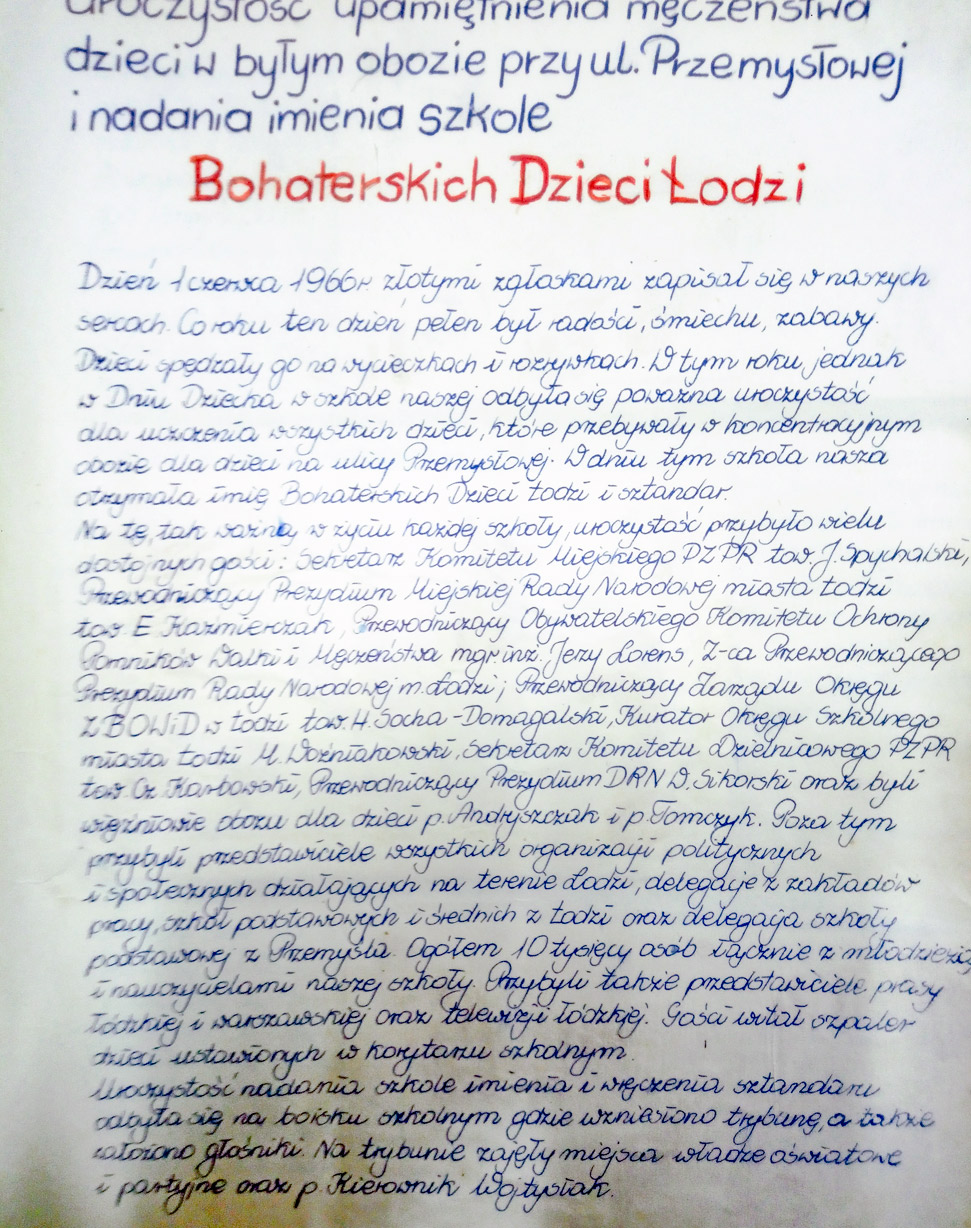 Uroczystość upamiętnienia męczeństwa
dzieci w byłym obozie przy ul. Przemysłowej
i nadania imienia szkole
Bohaterskich Dzieci Łodzi
Dzień 1 czerwca 1966r. złotymi zgłoskami zapisał się w naszych
sercach. Co roku ten dzień pełen był radości, śmiechu, zabawy.
Dzieci spędzały go na wycieczkach i rozrywkach. W tym roku, jednak
w Dniu Dziecka w szkole naszej odbyła się poważna uroczystość
dla uczczenia wszystkich dzieci, które przebywały w koncentracyjnym
obozie dla dzieci na ulicy Przemysłowej. W dniu tym szkoła nasza
otrzymała imię Bohaterskich Dzieci Łodzi i sztandar.
Na tę, tak ważną w życiu każdej szkoły, uroczystość przybyło wielu
dostojnych gości: Sekretarz Komitetu Miejskiego PZPR tow. J. Spychalski,
Przewodniczący Prezydium Miejskiej Rady Narodowej miasta Łodzi
tow. E. Kaźmierczak, Przewodniczący Obywatelskiego Komitetu Ochrony
Pomników Walki i Męczeństwa mgr.inż. Jerzy Lorens, Z-ca Przewodniczącego
Prezydium Rady Narodowej m. Łodzi; Przewodniczący Zarządu Okręgu
ZBOWiD w Łodzi tow. H. Socha-Domagalski, Kurator Okręgu Szkolnego
miasta Łodzi M. Woźniakowski, Sekretarz Komitetu Dzielnicowego PZPR
tow. Cz. Karbawski, Przewodniczący Prezydium DRN W. Sikorski oraz byli
więźniowie obozu dla dzieci p. Andryszczak i p. Tomczyk. Poza tym
przybyli przedstawiciele wszystkich organizacji politycznych
i społecznych działających na terenie Łodzi, delegacje z zakładów
pracy, szkół podstawowych i średnich z Łodzi oraz delegacja szkoły
podstawowej z Przemyśla. Ogółem 10 tysięcy osób łącznie z młodzieżą
i nauczycielami naszej szkoły. Przybyli także przedstawiciele prasy
łódzkiej i warszawskiej oraz telewizji łódzkiej. Gości witał szpaler
dzieci ustawionych w korytarzu szkolnym.
Uroczystość nadania szkole imienia i wręczenia sztandaru
odbyła się na boisku szkolnym gdzie wzniesiono trybunę, a także
założono głośniki. Na trybunie zajęły miejsca władze oświatowe
i partyjne oraz p. Kierownik Wojtysiak.